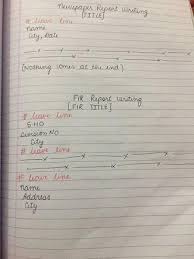 Newspaper Report Writing
[TITLE]
# leave line
Name
City, Date
(Nothing comes at the end)
FIR Report Writing
[FIR TITLE]
# leave line
S.H.O
Division NO
City
# leave line
# leave line
Name
Address
City